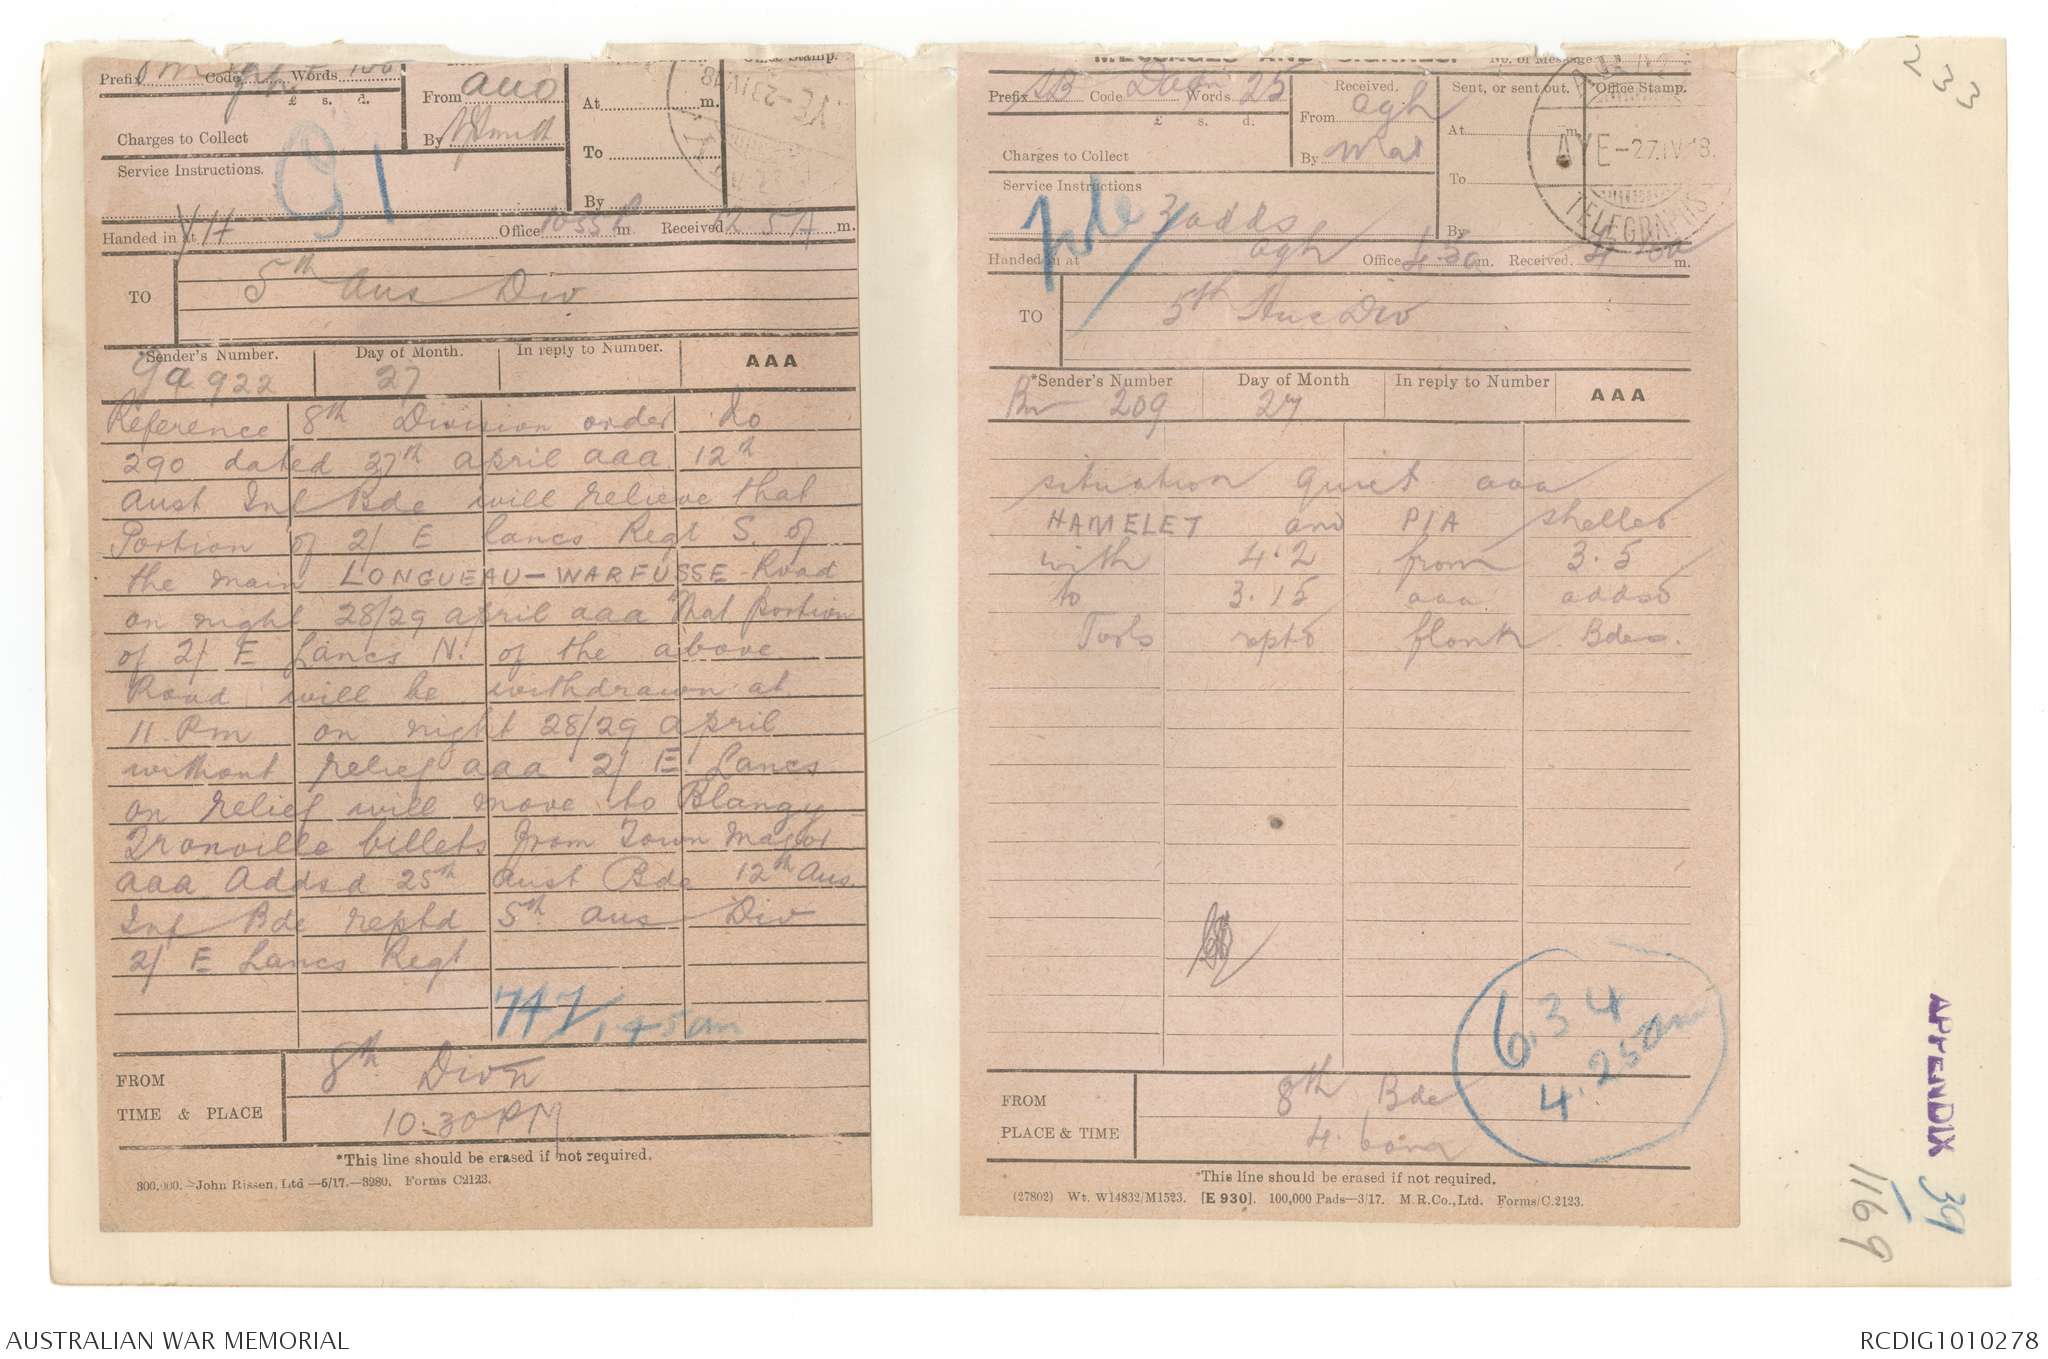 Prefix Code Words
£ s. d.
Charges to Collect
Service Instructions.
From AUO
By
At m.
To
By
Office Stamp.
G 1
Handed in at YH Office 10 55 P m Received 12 5 A m.
TO 5th Aus Div
*Sender's Number. Day of Month. In reply to Number. AAA
Ga 922 27
Reference 8th Division order No
290 dated 27th April aaa 12th
Aust Inf Bde will relieve that
Portion of 2/ E Lancs Regt S. of
the main LONGUEAU-WARFUSSE Road
on night 28/29 April aaa That Portion
of 2/ E Lancs N. of the above
Road will be withdrawn at
11 Pm on night 28/29 April
without relief aaa 2/ E Lancs
on relief will move to Blangy
Tronville billets from Town Major
aaa Addsd 25th Aust Bde 12th Aus.
Inf Bde reptd 5th Aus Div
2/ E Lancs Regt
747 1.45 am
FROM 8th Divn
TIME & PLACE 10.30 PM
*This line should be erased if not required.
300,000.—John Rissen, Ltd—5/17.—3280. Forms C2123.
MESSAGES AND SIGNALS. No. of Message
Prefix SB Code Words 25
£ s. d.
Charges to Collect
Service Instructions
3 adds
Received.
From agh
By
Sent, or sent out.
At m.
To
By
Office Stamp.
AYE-27.IV.18.
TELEGRAPHS
Handed in at agh Office 4.30 m. Received. m.
TO 5th Aus Div
*Sender's Number Day of Month In reply to Number AAA
Bm 209 27
situation quiet aaa
HAMELET and P1A shelled
with 4.2 from 3.5
to 3.15 aaa addsd
Tools reptd flank Bdes.
6.34
4.25 am
FROM 8th Bde
PLACE & TIME
*This line should be erased if not required.
(27802) Wt. W14832/M1523. [E 930]. 100,000 Pads—3/17. M.R.Co., Ltd. Forms/C.2123.
233
APPENDIX 39
1169
AUSTRALIAN WAR MEMORIAL
RCDIG1010278